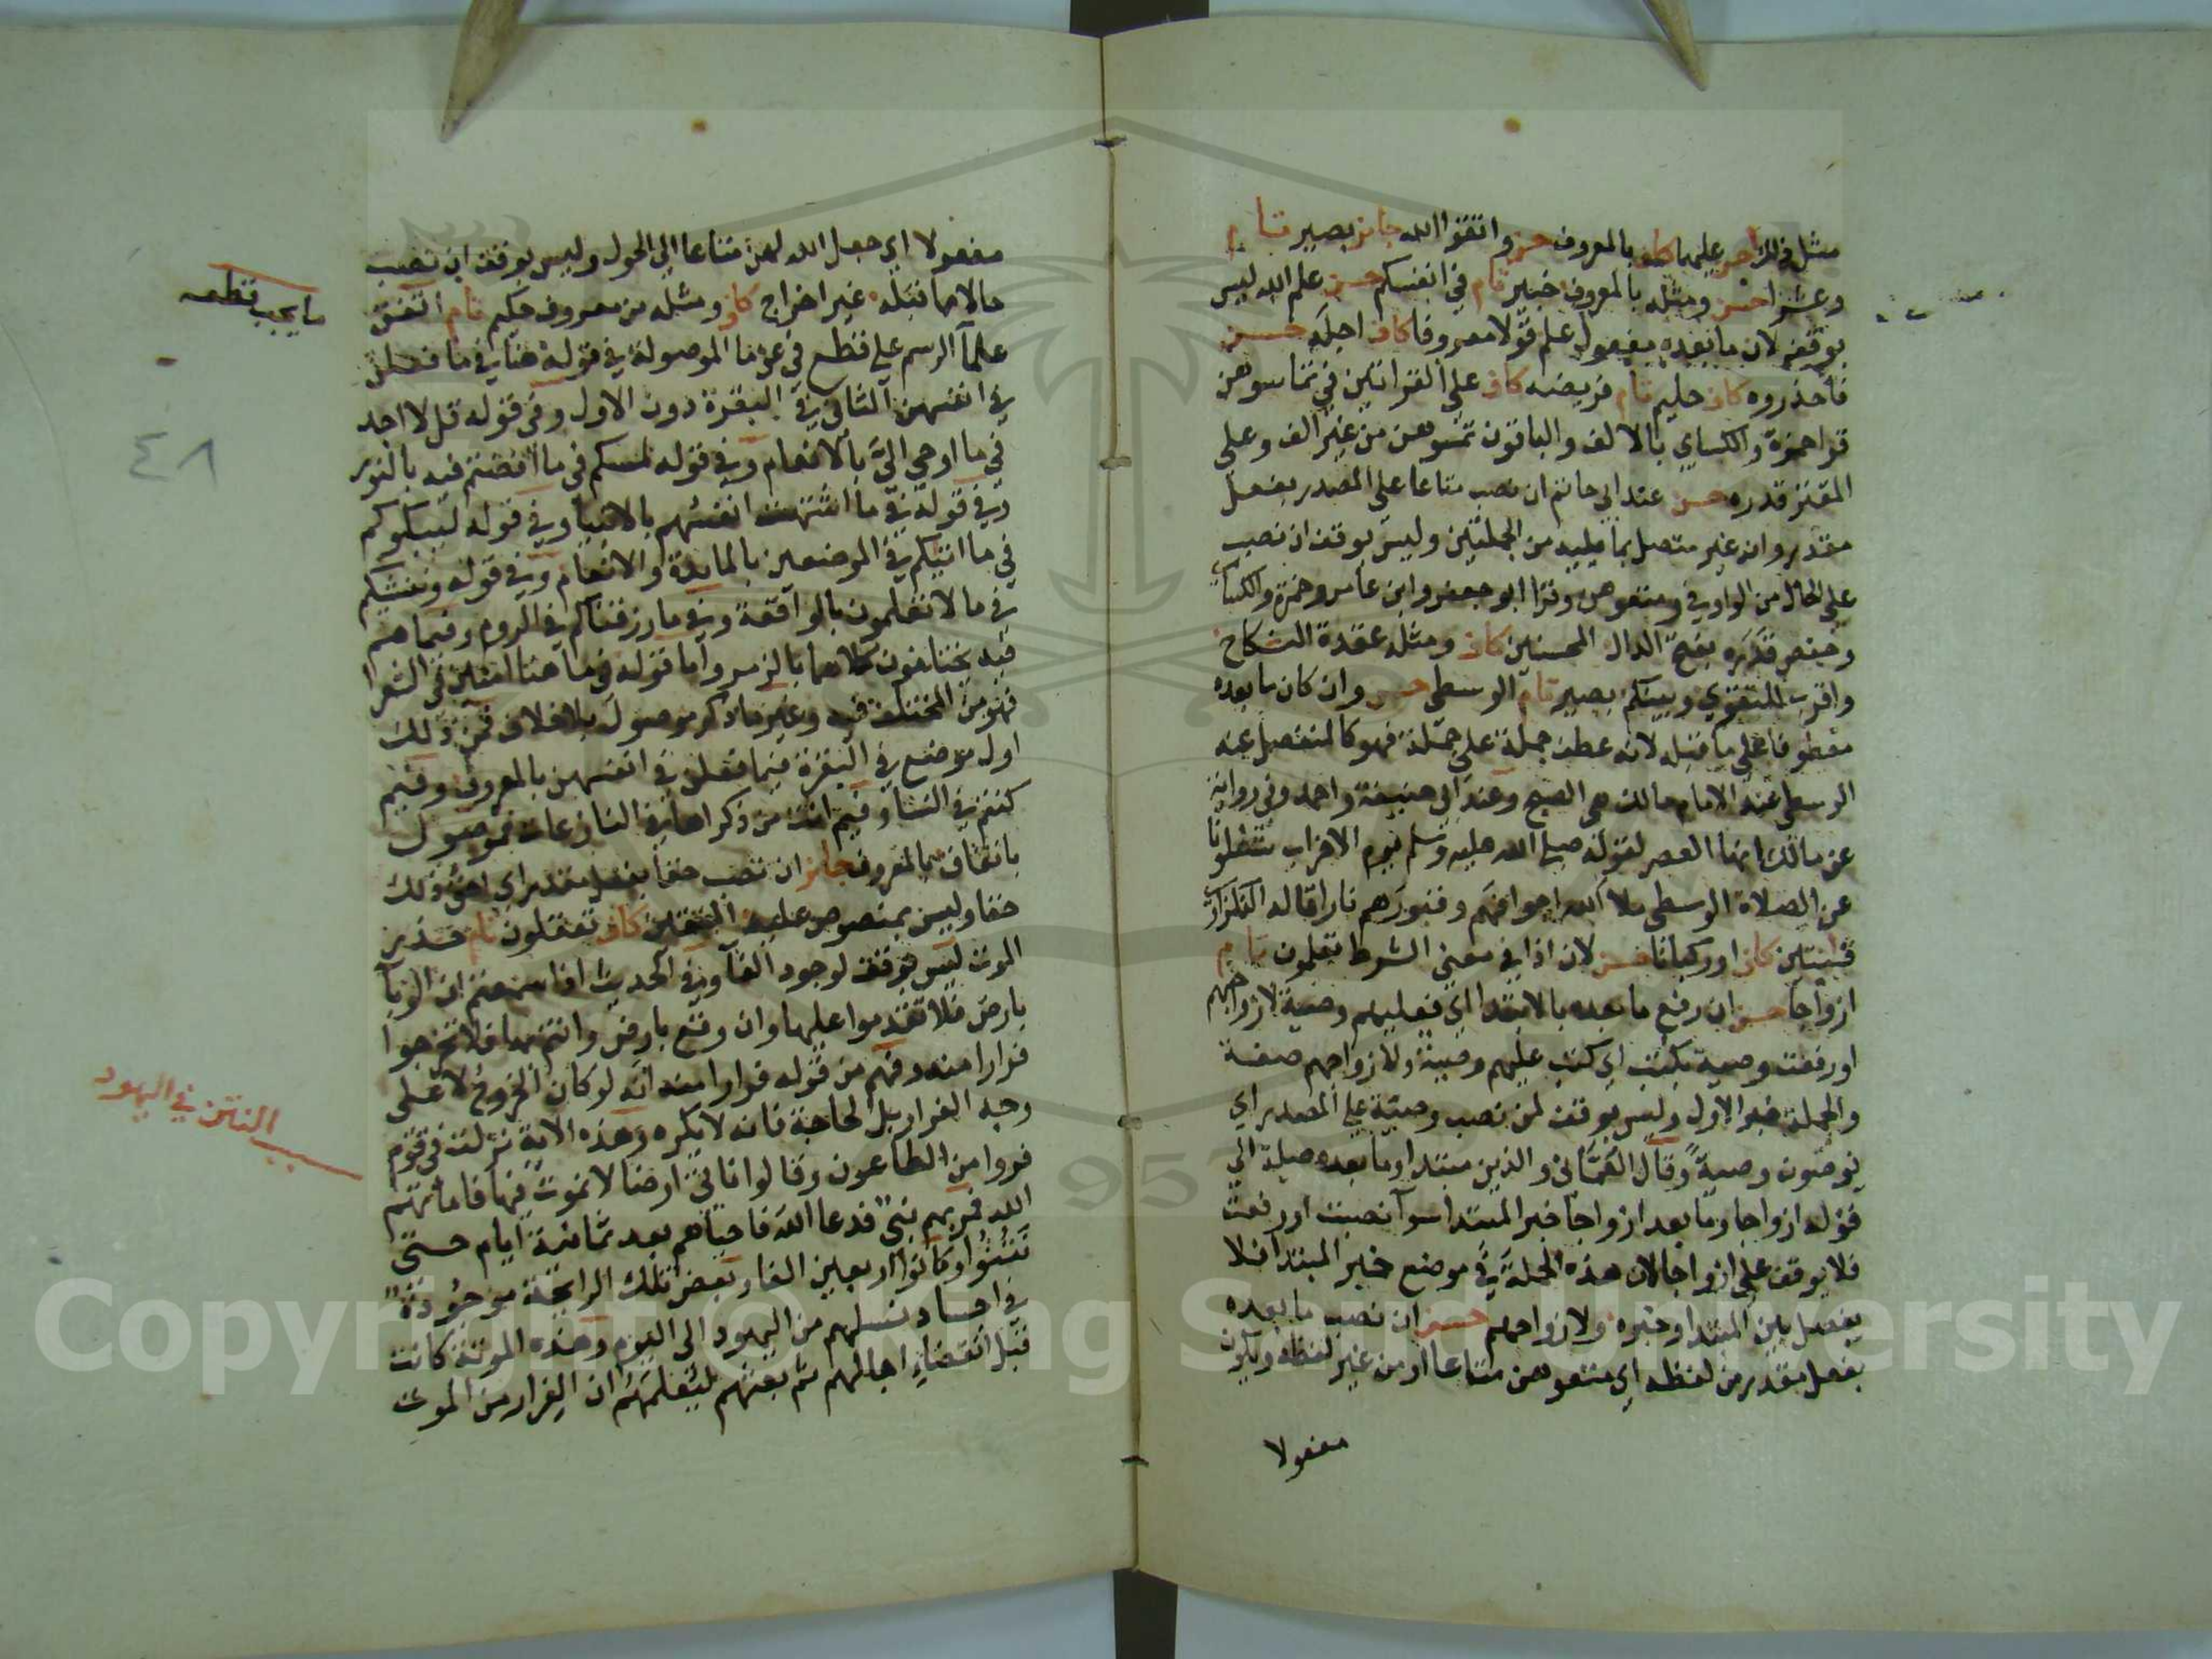 مثل ذلك احسن عليهما كاف بالمعروف حسن واتقوا الله جايز بصير تام
وعشرا حسن ومثله بالمعروف خبير تام في انفسكم حسن علم الله ليس
بوقف لان ما بعده مفعول علم قولا معروفا كاف اجله حسن
فاحذروه كاف حليم تام فريضه كاف على القراتين في تماسوهن
قرا حمزة والكساي بالالف والباقون تمسوهن من غير الف وعلى
المقتر قدره حسن عند ابي حاتم ان نصب متاعا على المصدر بفعل
مقدر وانه غير متصل بما يليه من الجملتين وليس بوقف ان نصب
على الحال من الواو في ومتعوهن وقرا ابو جعفر وابن عامر وحمزة والكساي
وحفص قدره بفتح الدال المحسنين كاف ومثله عقدة النكاح
واقرب للتقوي وبينكم بصير تام الوسطى حسن وان كان ما بعده
معطوفا على ما قبله لانه عطف جملة على جملة فهو كالمنفصل عنه
الوسطى عند الامام مالك هي الصبح وعند ابي حنيفة واحمد وفي رواية
عن مالك انها العصر لقوله صلى الله عليه وسلم يوم الاحزاب شغلونا
عن الصلاة الوسطى ملا الله اجوافهم وقبورهم نارا قاله النكزاوي
قنتين كاف او ركبانا حسن لان اذا في معنى الشرط تعلمون تام
ازواجا حسن ان رفع ما بعده بالابتدا اي فعليهم وصية لازواجهم
او رفعت وصية بكتب اي كتب عليهم وصية ولازواجهم صفة
والجملة خبر الاول وليس بوقف لمن نصب وصية على المصدر اي
يوصون وصية وقال العماني والذين مبتدا وما بعده صلة الي
قوله ازواجا وما بعد ازواجا خبر المبتدا سوا نصبت او رفعت
فلا يوقف على ازواجا لان هذه الجملة في موضع خبر المبتدا فلا
يفصل بين المبتدا وخبره ولازواجهم حسن ان نصب ما بعده
بفعل مقدر من لفظه اي متعوهن متاعا او من غير لفظه ويكون
مفعولا
مفعولا اي جعل الله لهن متاعا الى الحول وليس بوقف ان نصب
حالا مما قبله غير اخراج كاف ومثله من معروف حكيم تام اتفق
علما الرسم على قطع في عن ما الموصولة في قوله هنا في ما فعلن
في انفسهن الثاني في البقرة دون الاول وفي قوله قل لا اجد
في ما اوحي الي بالانعام وفي قوله لمسكم في ما افضتم فيه بالنور
وفي قوله في ما اشتهت انفسهم بالانبيا وفي قوله ليبلوكم
في ما اتيكم في الموضعين بالمايدة والانعام وفي قوله وننشكم
في ما لا تعلمون بالواقعة وفي ما رزقناكم في الروم وفيما هم
فيه يختلفون كلاهما بالزمر واما قوله في ما هنا امنين في الشعرا
فهو من المختلف فيه وغير ما ذكر موصول بلا خلاف فمن ذلك
اول موضع في البقرة فيما فعلن في انفسهن بالمعروف وفيم
كنتم في النسا وفيم انت من ذكراها في النازعات فموصول
باتفاق بالمعروف جايز ان نصب حقا بفعل مقدر اي احق ذلك
حقا وليس بمنصوص عليه المتقين كاف تعقلون تام حذر
الموت ليس بوقف لوجود الفا وفي الحديث اذا سمعتم ان الوبا
بارض فلا تقدموا عليها وان وقع بارض وانتم بها فلا تخرجوا
فرارا منه وفهم من قوله فرارا منه انه لو كان الخروج لا على
وجه الفرار بل لحاجة فانه لا يكره وهذه الاية نزلت في قوم
فروا من الطاعون وقالوا ناتي ارضا لا نموت فيها فاماتهم
الله فمر بهم نبي فدعا الله فاحياهم بعد ثمانية ايام حتى
نتنوا وكانوا اربعين الفا وبعض تلك الرايحة موجودة
في اجساد نسلهم من اليهود الى اليوم وهذه الموتة كانت
قبل انقضاء اجالهم ثم بعثهم ليعلمهم ان الفرار من الموت
ما يجب قطعه
٤٨
النتن في اليهود
Copyright © King Saud University